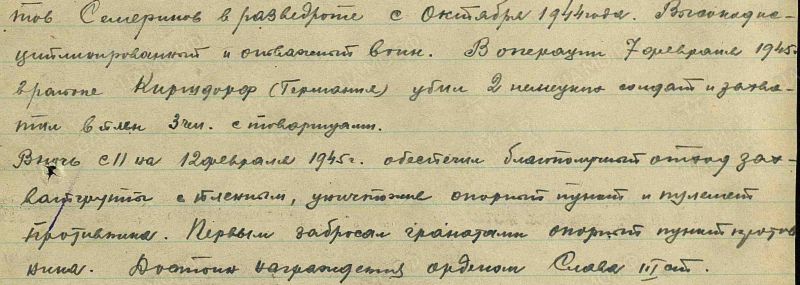 тов Семеринов в разведроте с Октября 1944 года. Высокодис-
циплинированный и отважный воин. В операции 7 февраля 1945г.
в районе Киршдорф (Германия) убил 2 немецких солдат и захва-
тил в плен 3 чел. с товарищами.
В ночь с 11 на 12 февраля 1945г. обеспечил благополучный отход зах-
ватгруппы с пленным, уничтожив опорный пункт и пулемет
противника. Первым забросал гранатами опорный пункт против
ника. Достоин награждения орденом Слава III ст.